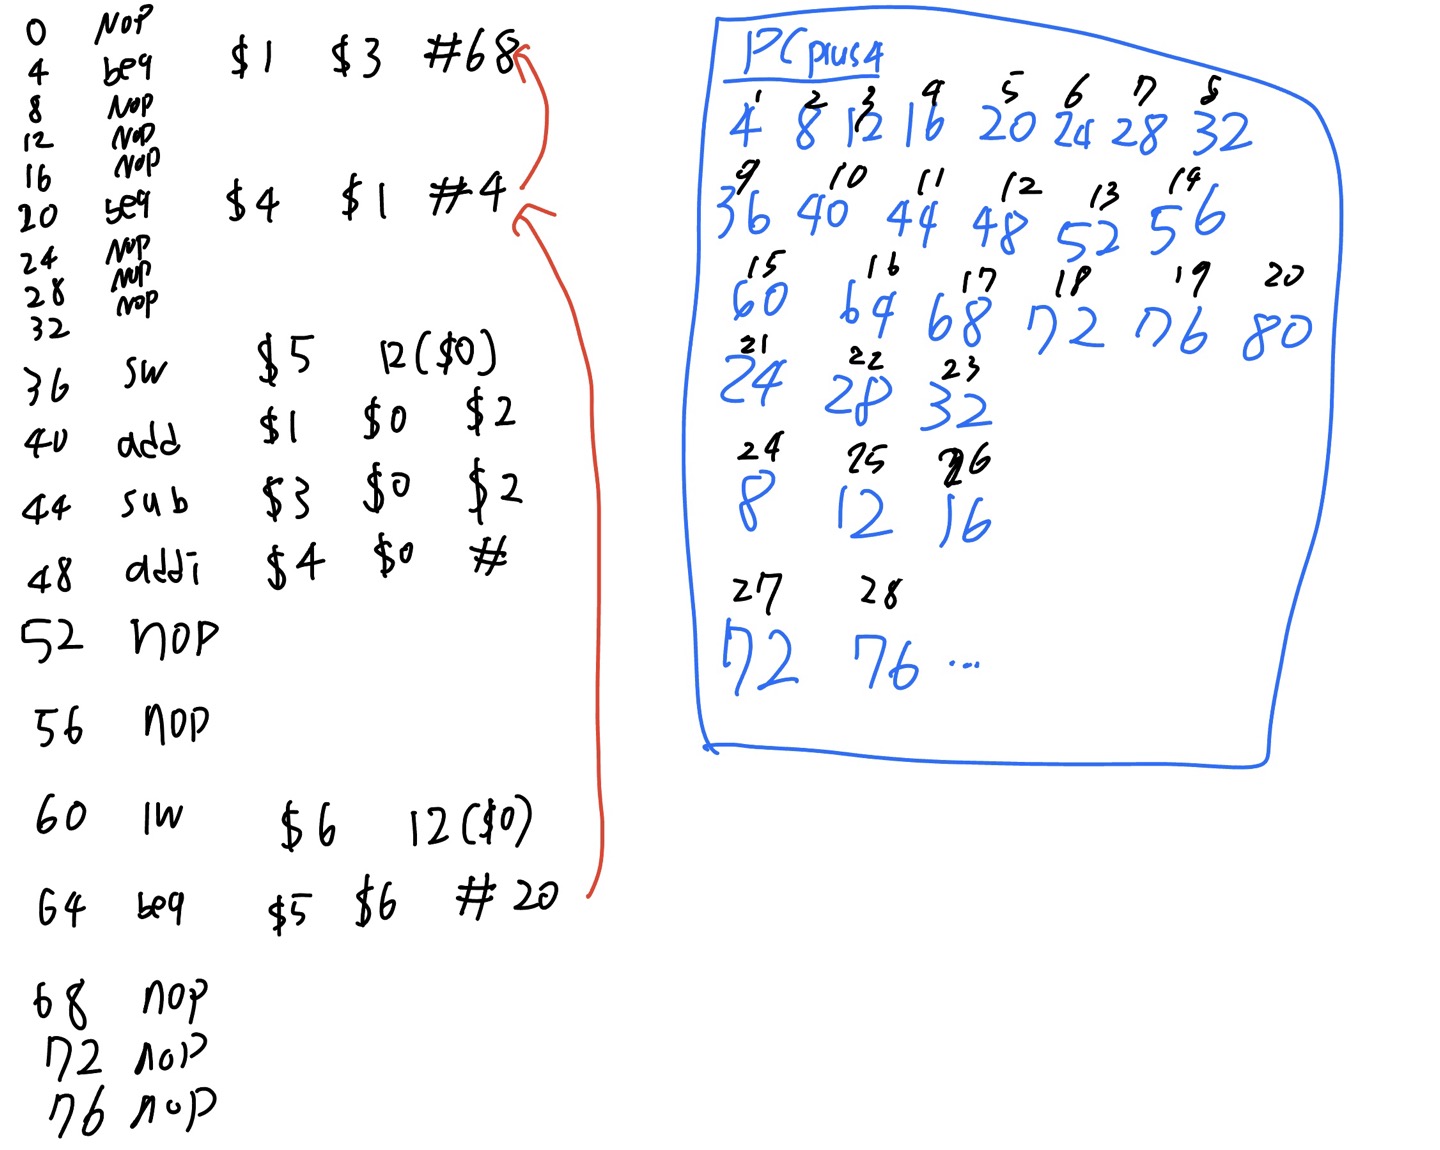 0 NOP
4 beq $1 $3 #68
8 NOP
12 NOP
16 NOP
20 beq $4 $1 #4
24 NOP
28 NOP
32 NOP
36 sw $5 12($0)
40 add $1 $0 $2
44 sub $3 $0 $2
48 addi $4 $0 #
52 nop
56 nop
60 lw $6 12($0)
64 beq $5 $6 #20
68 nop
72 nop
76 nop
PCplus4
1 2 3 4 5 6 7 8
4 8 12 16 20 24 28 32
9 10 11 12 13 14
36 40 44 48 52 56
15 16 17 18 19 20
60 64 68 72 76 80
21 22 23
24 28 32
24 25 26
8 12 16
27 28
72 76 ...